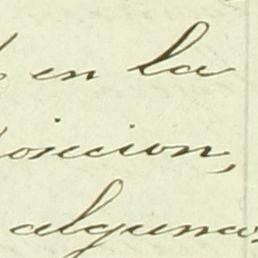 en la
oicion,
alguna